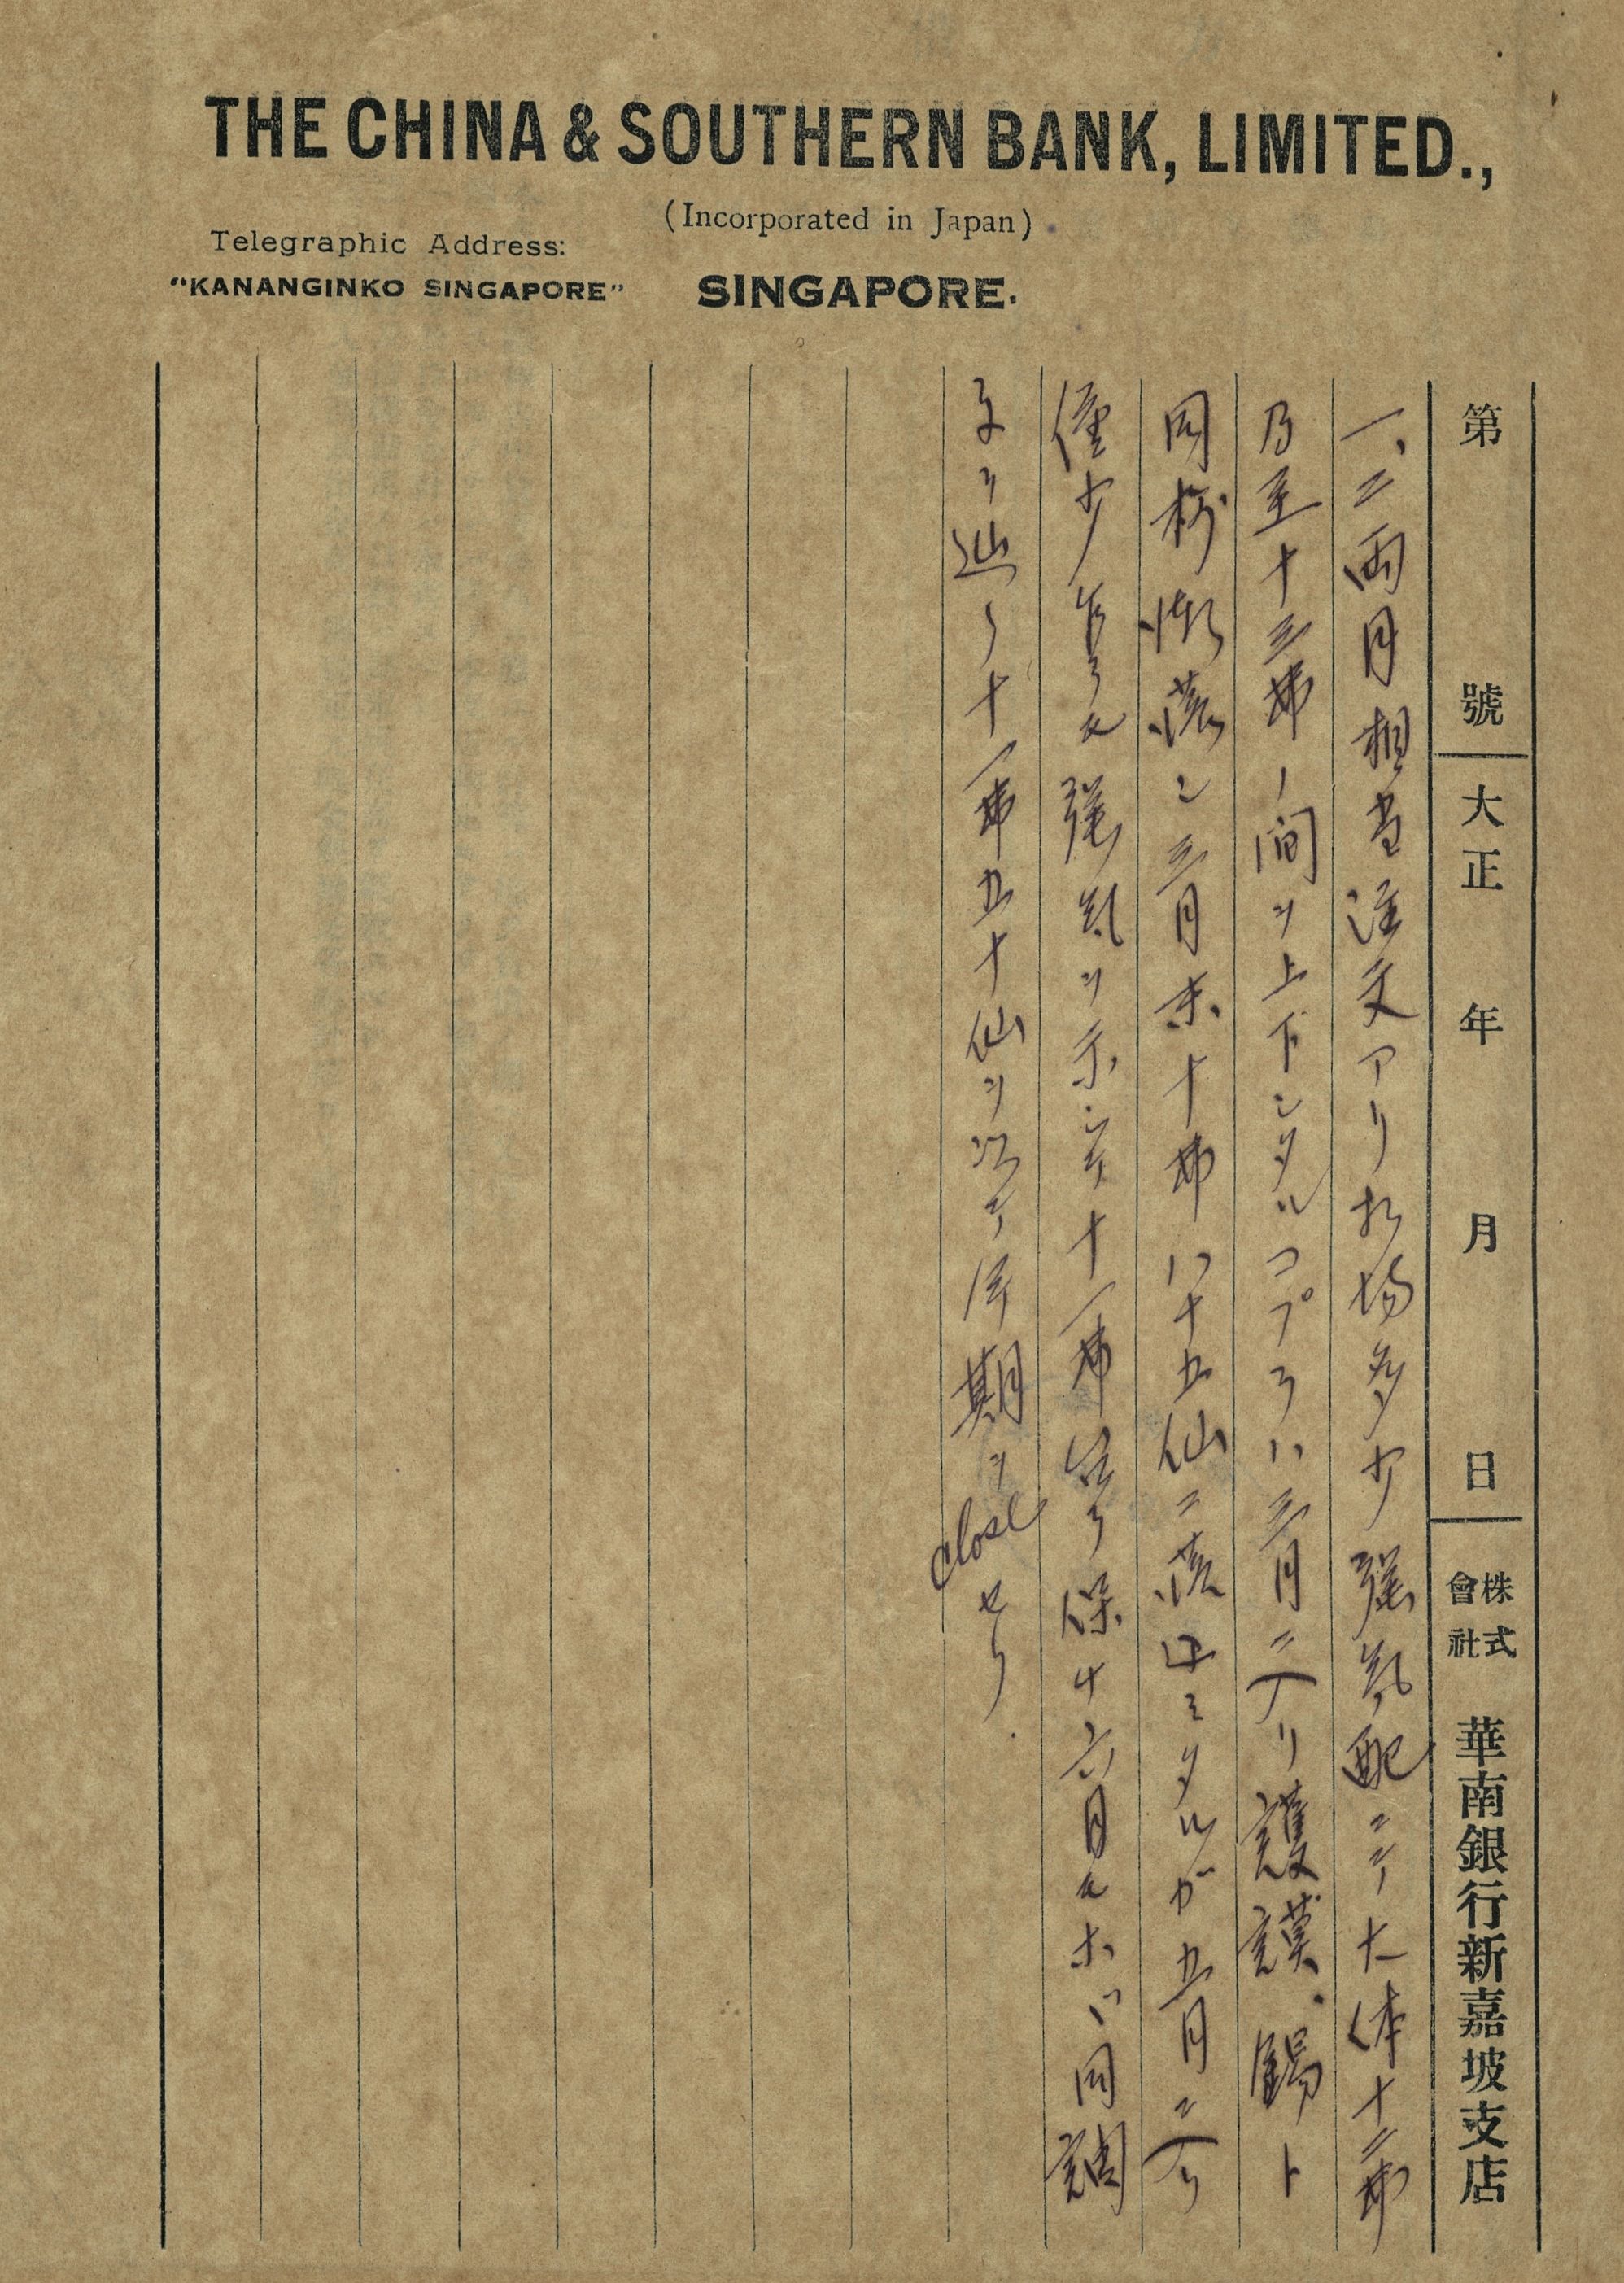 THE CHINA & SOUTHERN BANK, LIMITED.,
(Incorporated in Japan)
Telegraphic Address:
"KANANGINKO SINGAPORE"
SINGAPORE.
第 號 大正 年 月 日 株式會社 華南銀行新嘉坡支店
一、二両月相當注文アリ相場多少強気配ニテ大体十二弗
乃至十三弗ノ間ヲ上下シタルコプラハ三月ニ入リ護謨、錫ト
同様漸落シ三月末十弗八十五仙ニ落込ミタルガ五月ニ入り
僅少乍ら強気ヲ示シテ十一弗台ヲ保チ六月モホバ同調
ヲ辿り十一弗五十仙ヲ以テ半期ヲ close せり.